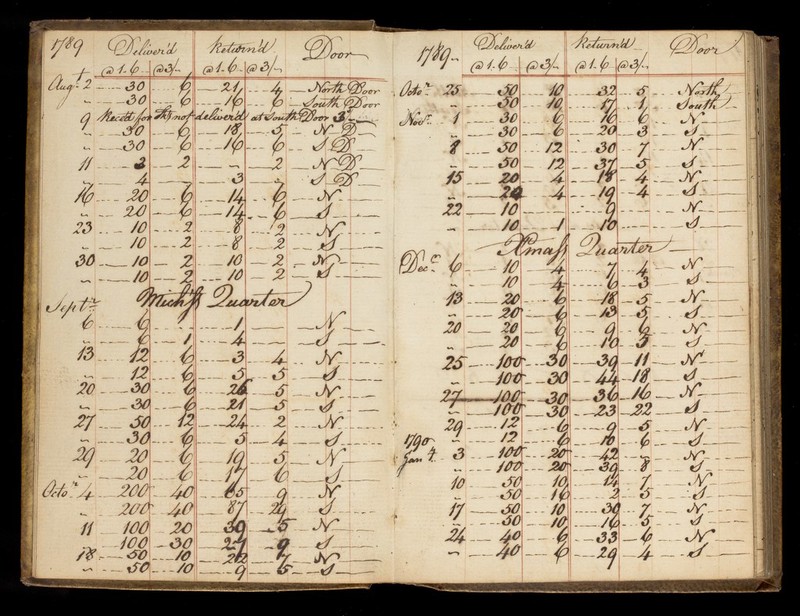 1789 Deliver'd Return'd Door
@ 1.6 @ 3/- @ 1.6 @ 3/-
Augt 2 30 6 21 4 North Door
30 6 16 6 South Door
9 Rec'd for deliver'd at South Door 3
30 6 18 5 N D
30 6 16 6 S D
11 3 2 — 2 N D
4 — 3 — S D
16 20 6 14 6 N
20 6 14 6 S
23 10 2 8 2 N
10 2 8 2 S
30 10 2 10 2 N
10 2 10 2 S
Septr Quarter
6 6 — 1 — N
6 1 4 — S
13 12 6 3 4 N
12 6 5 5 S
20 30 6 26 5 N
30 6 21 5 S
27 50 12 24 2 N
30 6 5 4 S
29 20 6 19 5 N
20 6 17 6 S
Octor 4 200 40 9 N
200 40 87 24 S
11 100 20 39 5 N
100 30 9 S
18 50 10 7 N
50 10 9 5 S
1789 Deliver'd Return'd Door
@ 1.6 @ 3/- @ 1.6 @ 3/-
Octor 25 50 10 32 5 North
50 10 17 1 South
Novr 1 30 6 16 6 N
30 6 20 3 S
8 50 12 30 7 N
50 12 37 5 S
15 20 4 18 4 N
20 4 19 4 S
22 10 — 9 — N
10 1 10 — S
Xmass Quarter
Decr 6 10 4 7 4 N
10 4 6 3 S
13 20 6 18 5 N
20 6 13 5 S
20 20 6 9 6 N
20 6 10 5 S
25 100 30 39 11 N
100 30 44 18 S
27 100 30 36 16 N
100 30 23 22 S
29 12 6 9 5 N
1790 12 6 10 6 S
Jany 3 100 20 42 — N
100 20 39 8 S
10 50 10 14 7 N
50 16 2 5 S
17 50 10 30 7 N
50 10 16 5 S
24 40 6 33 6 N
40 6 29 4 S